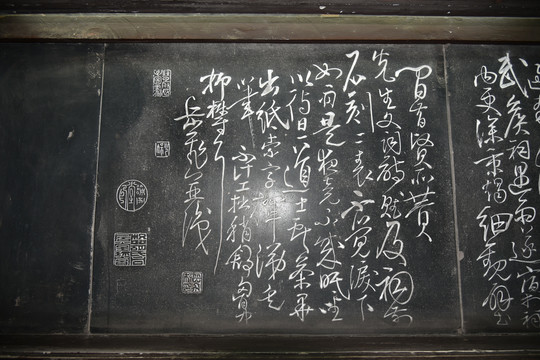 武侯祠遇雨遂宿於祠
内更深秉燭細觀壁
間昔賢所贊
先生文詞詩賦及祠前
石刻二表不覺淚下
如雨是夜竟不成眠坐
以待旦道士獻茶畢
出紙索字揮涕走
筆不計工拙稍舒胸中
抑鬱耳
岳飛並識